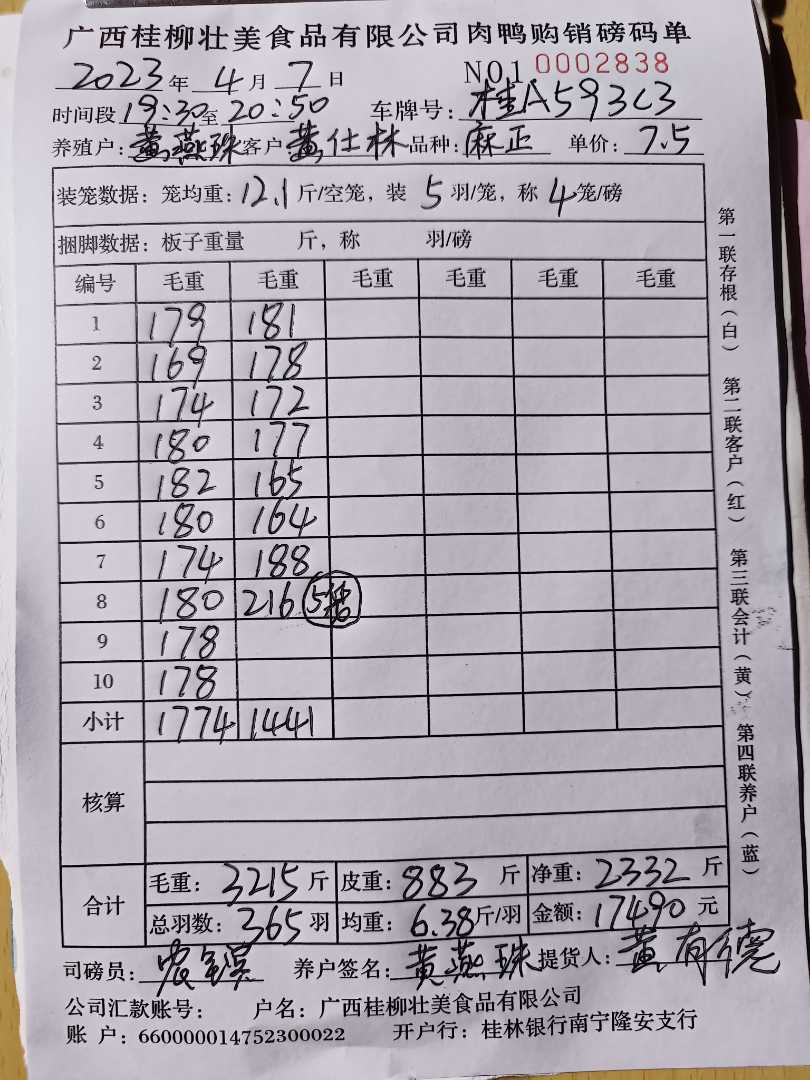 广西桂柳壮美食品有限公司肉鸭购销磅码单
2023年4月7日 NO1 0002838
时间段19:30至20:50 车牌号:桂A593C3
养殖户:黄燕珠 客户:黄仕林 品种:麻正 单价:7.5
装笼数据:笼均重:12.1斤/空笼,装5羽/笼,称4笼/磅
捆脚数据:板子重量 斤,称 羽/磅
编号 毛重 毛重 毛重 毛重 毛重 毛重
1 179 181
2 169 178
3 174 172
4 180 177
5 182 165
6 180 164
7 174 188
8 180 216 5笼
9 178
10 178
小计 1774 1441
核算
合计 毛重:3215斤 皮重:883斤 净重:2332斤
总羽数:365羽 均重:6.38斤/羽 金额:17490元
司磅员: 养户签名:黄燕珠 提货人:黄有德
公司汇款账号: 户名:广西桂柳壮美食品有限公司
账 户:660000014752300022 开户行:桂林银行南宁隆安支行
第一联存根(白) 第二联客户(红) 第三联会计(黄) 第四联养户(蓝)